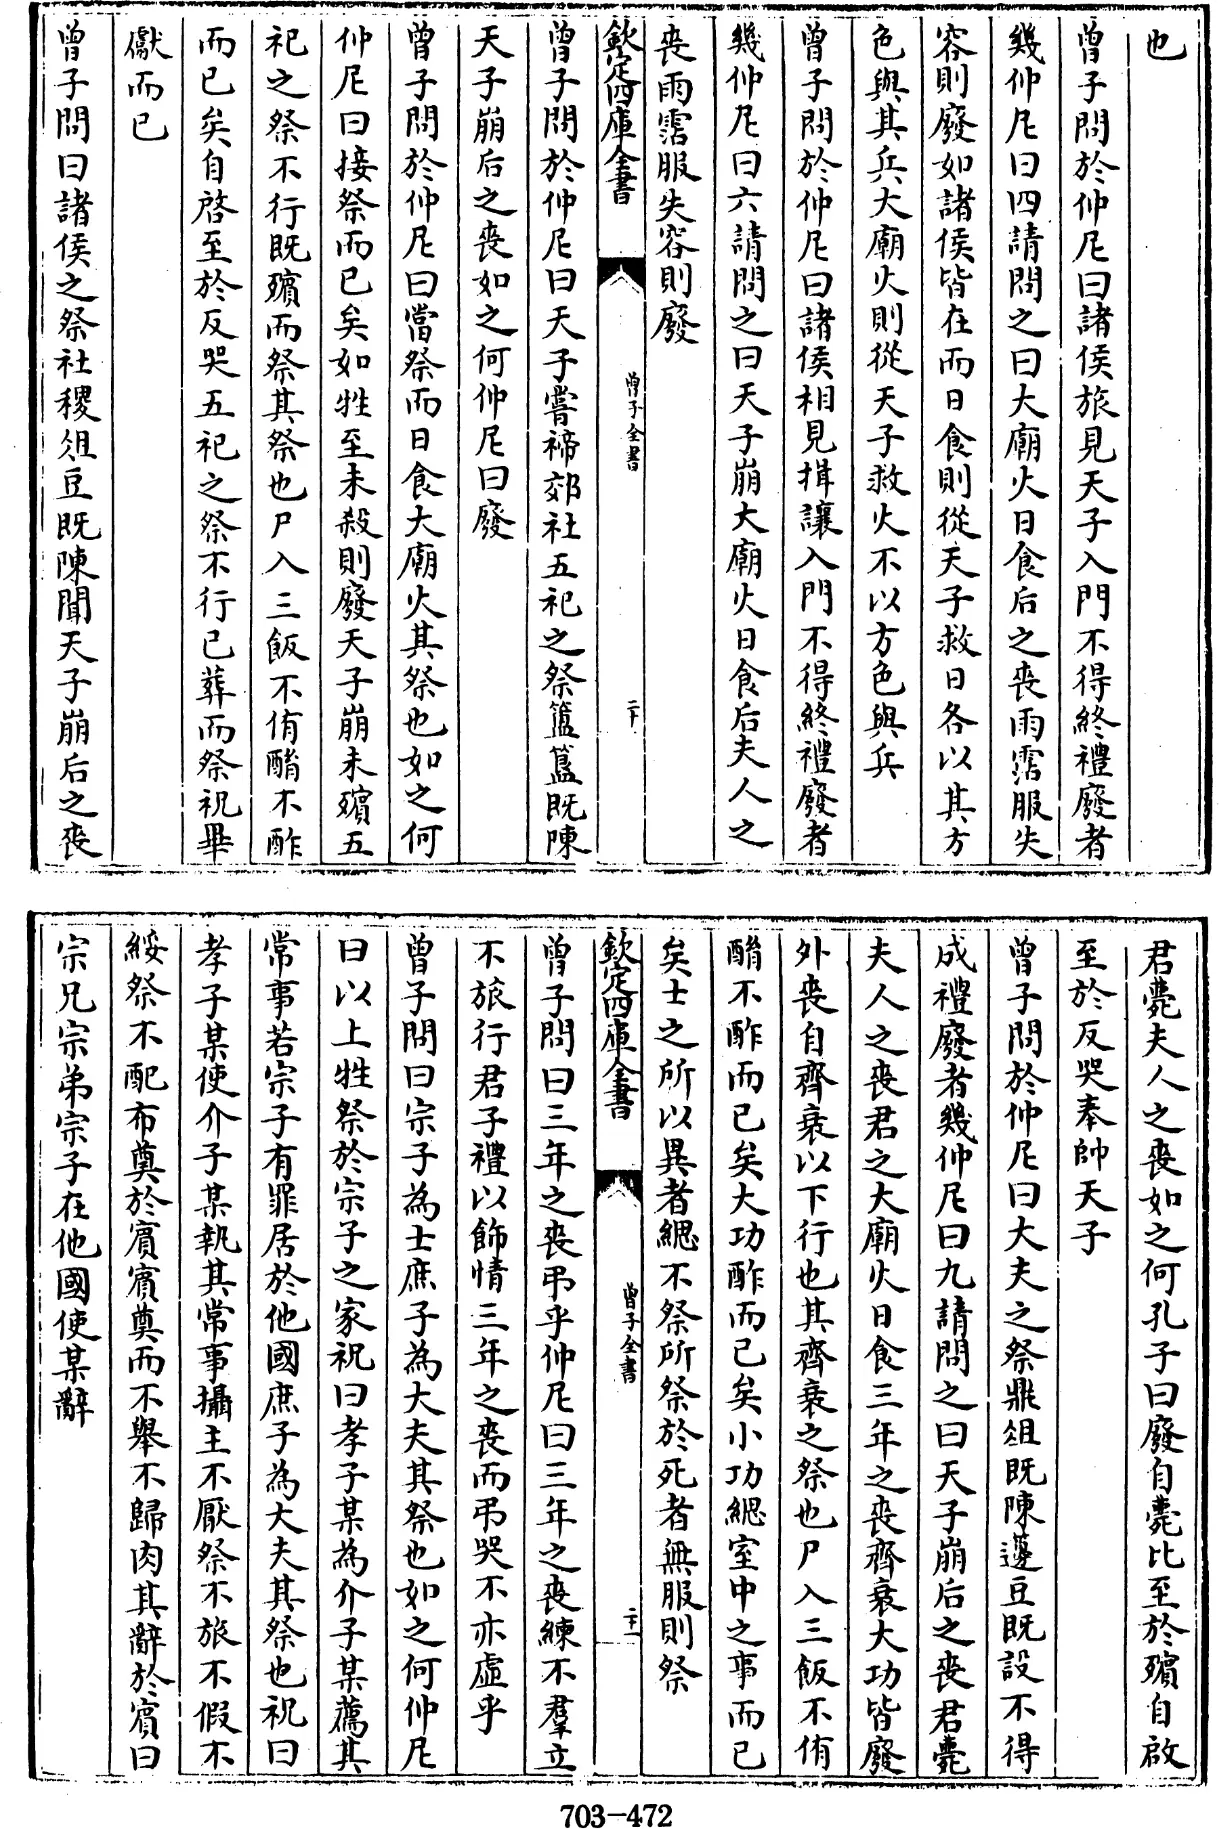 也
曾子問於仲尼曰諸侯旅見天子入門不得終禮廢者
幾仲尼曰四請問之曰大廟火日食后之喪雨霑服失
容則廢如諸侯皆在而日食則從天子救日各以其方
色與其兵大廟火則從天子救火不以方色與兵
曾子問於仲尼曰諸侯相見揖讓入門不得終禮廢者
幾仲尼曰六請問之曰天子崩大廟火日食后夫人之
喪雨霑服失容則廢
欽定四庫全書
曾子全書
二十
曾子問於仲尼曰天子嘗禘郊社五祀之祭簠簋既陳
天子崩后之喪如之何仲尼曰廢
曾子問於仲尼曰當祭而日食大廟火其祭也如之何
仲尼曰接祭而已矣如牲至未殺則廢天子崩未殯五
祀之祭不行既殯而祭其祭也尸入三飯不侑酳不酢
而已矣自啓至於反哭五祀之祭不行已葬而祭祝畢
獻而已
曾子問曰諸侯之祭社稷俎豆既陳聞天子崩后之喪
君薨夫人之喪如之何孔子曰廢自薨比至於殯自啟
至於反哭奉帥天子
曾子問於仲尼曰大夫之祭鼎俎既陳籩豆既設不得
成禮廢者幾仲尼曰九請問之曰天子崩后之喪君薨
夫人之喪君之大廟火日食三年之喪齊衰大功皆廢
外喪自齊衰以下行也其齊衰之祭也尸入三飯不侑
酳不酢而已矣大功酢而已矣小功緦室中之事而已
矣士之所以異者緦不祭所祭於死者無服則祭
欽定四庫全書
曾子全書
二十一
曾子問曰三年之喪弔乎仲尼曰三年之喪練不羣立
不旅行君子禮以飾情三年之喪而弔哭不亦虛乎
曾子問曰宗子為士庶子為大夫其祭也如之何仲尼
曰以上牲祭於宗子之家祝曰孝子某為介子某薦其
常事若宗子有罪居於他國庶子為大夫其祭也祝曰
孝子某使介子某執其常事攝主不厭祭不旅不假不
綏祭不配布奠於賓賓奠而不舉不歸肉其辭於賓曰
宗兄宗弟宗子在他國使某辭
703-472